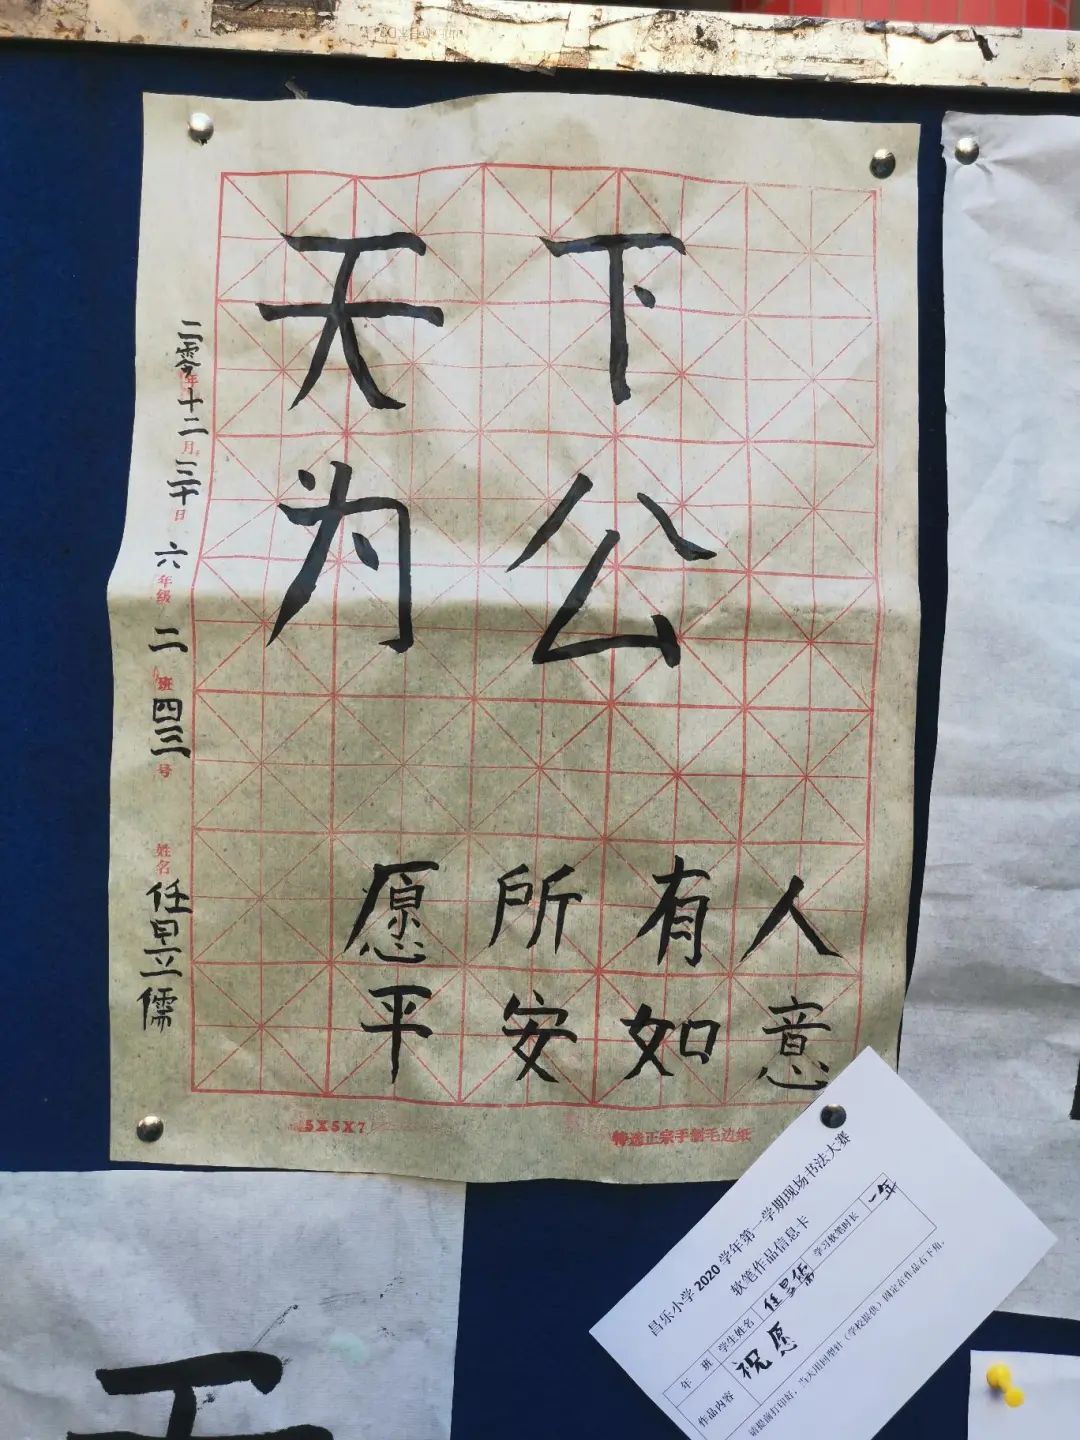 天下
为公
愿所有人
平安如意
二零年十二月三十日 六年级二班四三号 姓名 任昱儒
5X5X7
特选正宗手制毛边纸
昌乐小学2020学年第一学期现场书法大赛
软笔作品信息卡
年 班 学生姓名 任昱儒 学习软笔时长 一年
作品内容 祝愿
请提前打印好，当天用回型针（学校提供）固定在作品右下角。